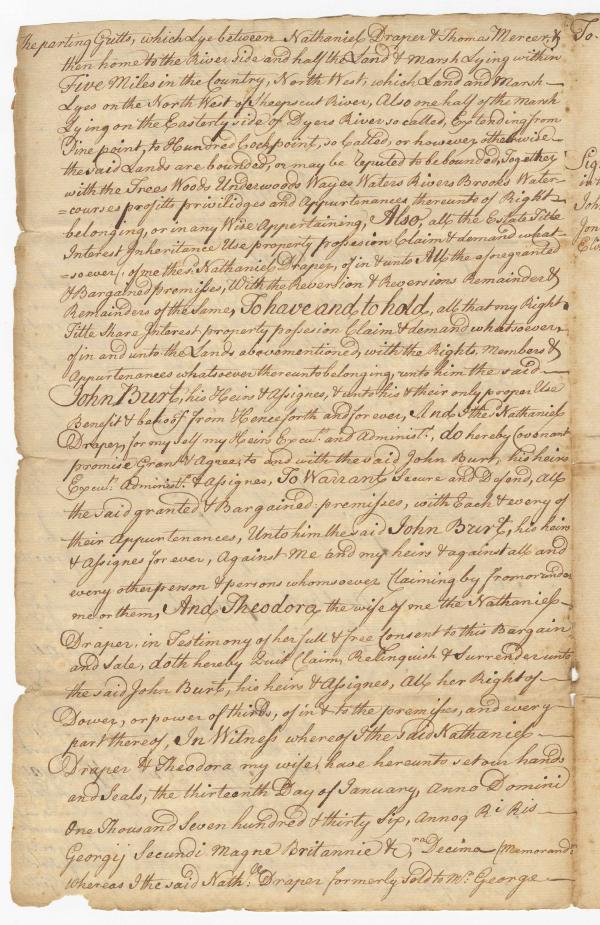 the parting Gutts, which Lye between Nathaniel Draper & Thomas Mercer, &
then home to the River side and half the Land & Marsh Lying within
Five Miles in the Country, North West, which Land and Marsh
Lyes on the North West of Sheepscut River, Also one half of the Marsh
Lying on the Easterly side of Dyers River so called, Extending from
Pine point, to Hundred Cock point, so Called, or however otherwise
the said Lands are bounded, or may be reputed to be bounded, Together
with the Trees Woods Underwoods Wayes Waters Rivers Brooks Water-
=courses profitts priviledges and Appurtenances thereunto of Right
belonging, or in any Wise Appertaining, Also, all the Estate Title
Interest Inheritance Use property possesion Claim & demand what-
=soever, of me the sd. Nathaniel Draper, of in & unto All the aforegranted
& Bargained premises, With the Revertion & Reversions Remainder &
Remainders of the Same, To have and to hold, all that my Right
Title Share Interest property possesion Claim & demand whatsoever,
of in and unto the Lands abovementioned, with the Rights, Members &
Appurtenances whatsoever thereunto belonging, unto him the said
John Burt, his Heirs & Assignes, & unto his & their only proper Use
Benefit & behoof from Henceforth and for ever, And I the sd. Nathaniel
Draper, for my self my Heirs Execut. and Administ., do hereby Covenant
promise Grant & Agree, to and with the said John Burt, his heirs
Execut. Administ. & Assignes, To Warrant Secure and Defend, All
the said granted & Bargained premisses, with Each & every of
their Appurtenances, Unto him the said John Burt, his heirs
& Assignes for ever, Against Me and my heirs & against all and
every other person & persons whomsoever Claiming by from or under
me or them, And Theodora, the wife of me the Nathaniel
Draper, in Testimony of her full & free Consent to this Bargain
and Sale, doth hereby Quit Claim, Relinquish & Surrender unto
the said John Burt, his heirs & Assignes, All her Right of
Dower, or power of thirds, of in & to the premisses, and every
part thereof, In Witness whereof I the said Nathaniel
Draper & Theodora my wife, have hereunto set our hands
and Seals, the thirteenth Day of January, Anno Domini
One Thousand Seven hundred & thirty Six, Annoq Ri Ris
Georgij Secundi Magne Britannie &c. Decimo (Memorand
Whereas I the said Nath. Draper formerly Sold to Mr. George
To
Sig
in
John
Jon